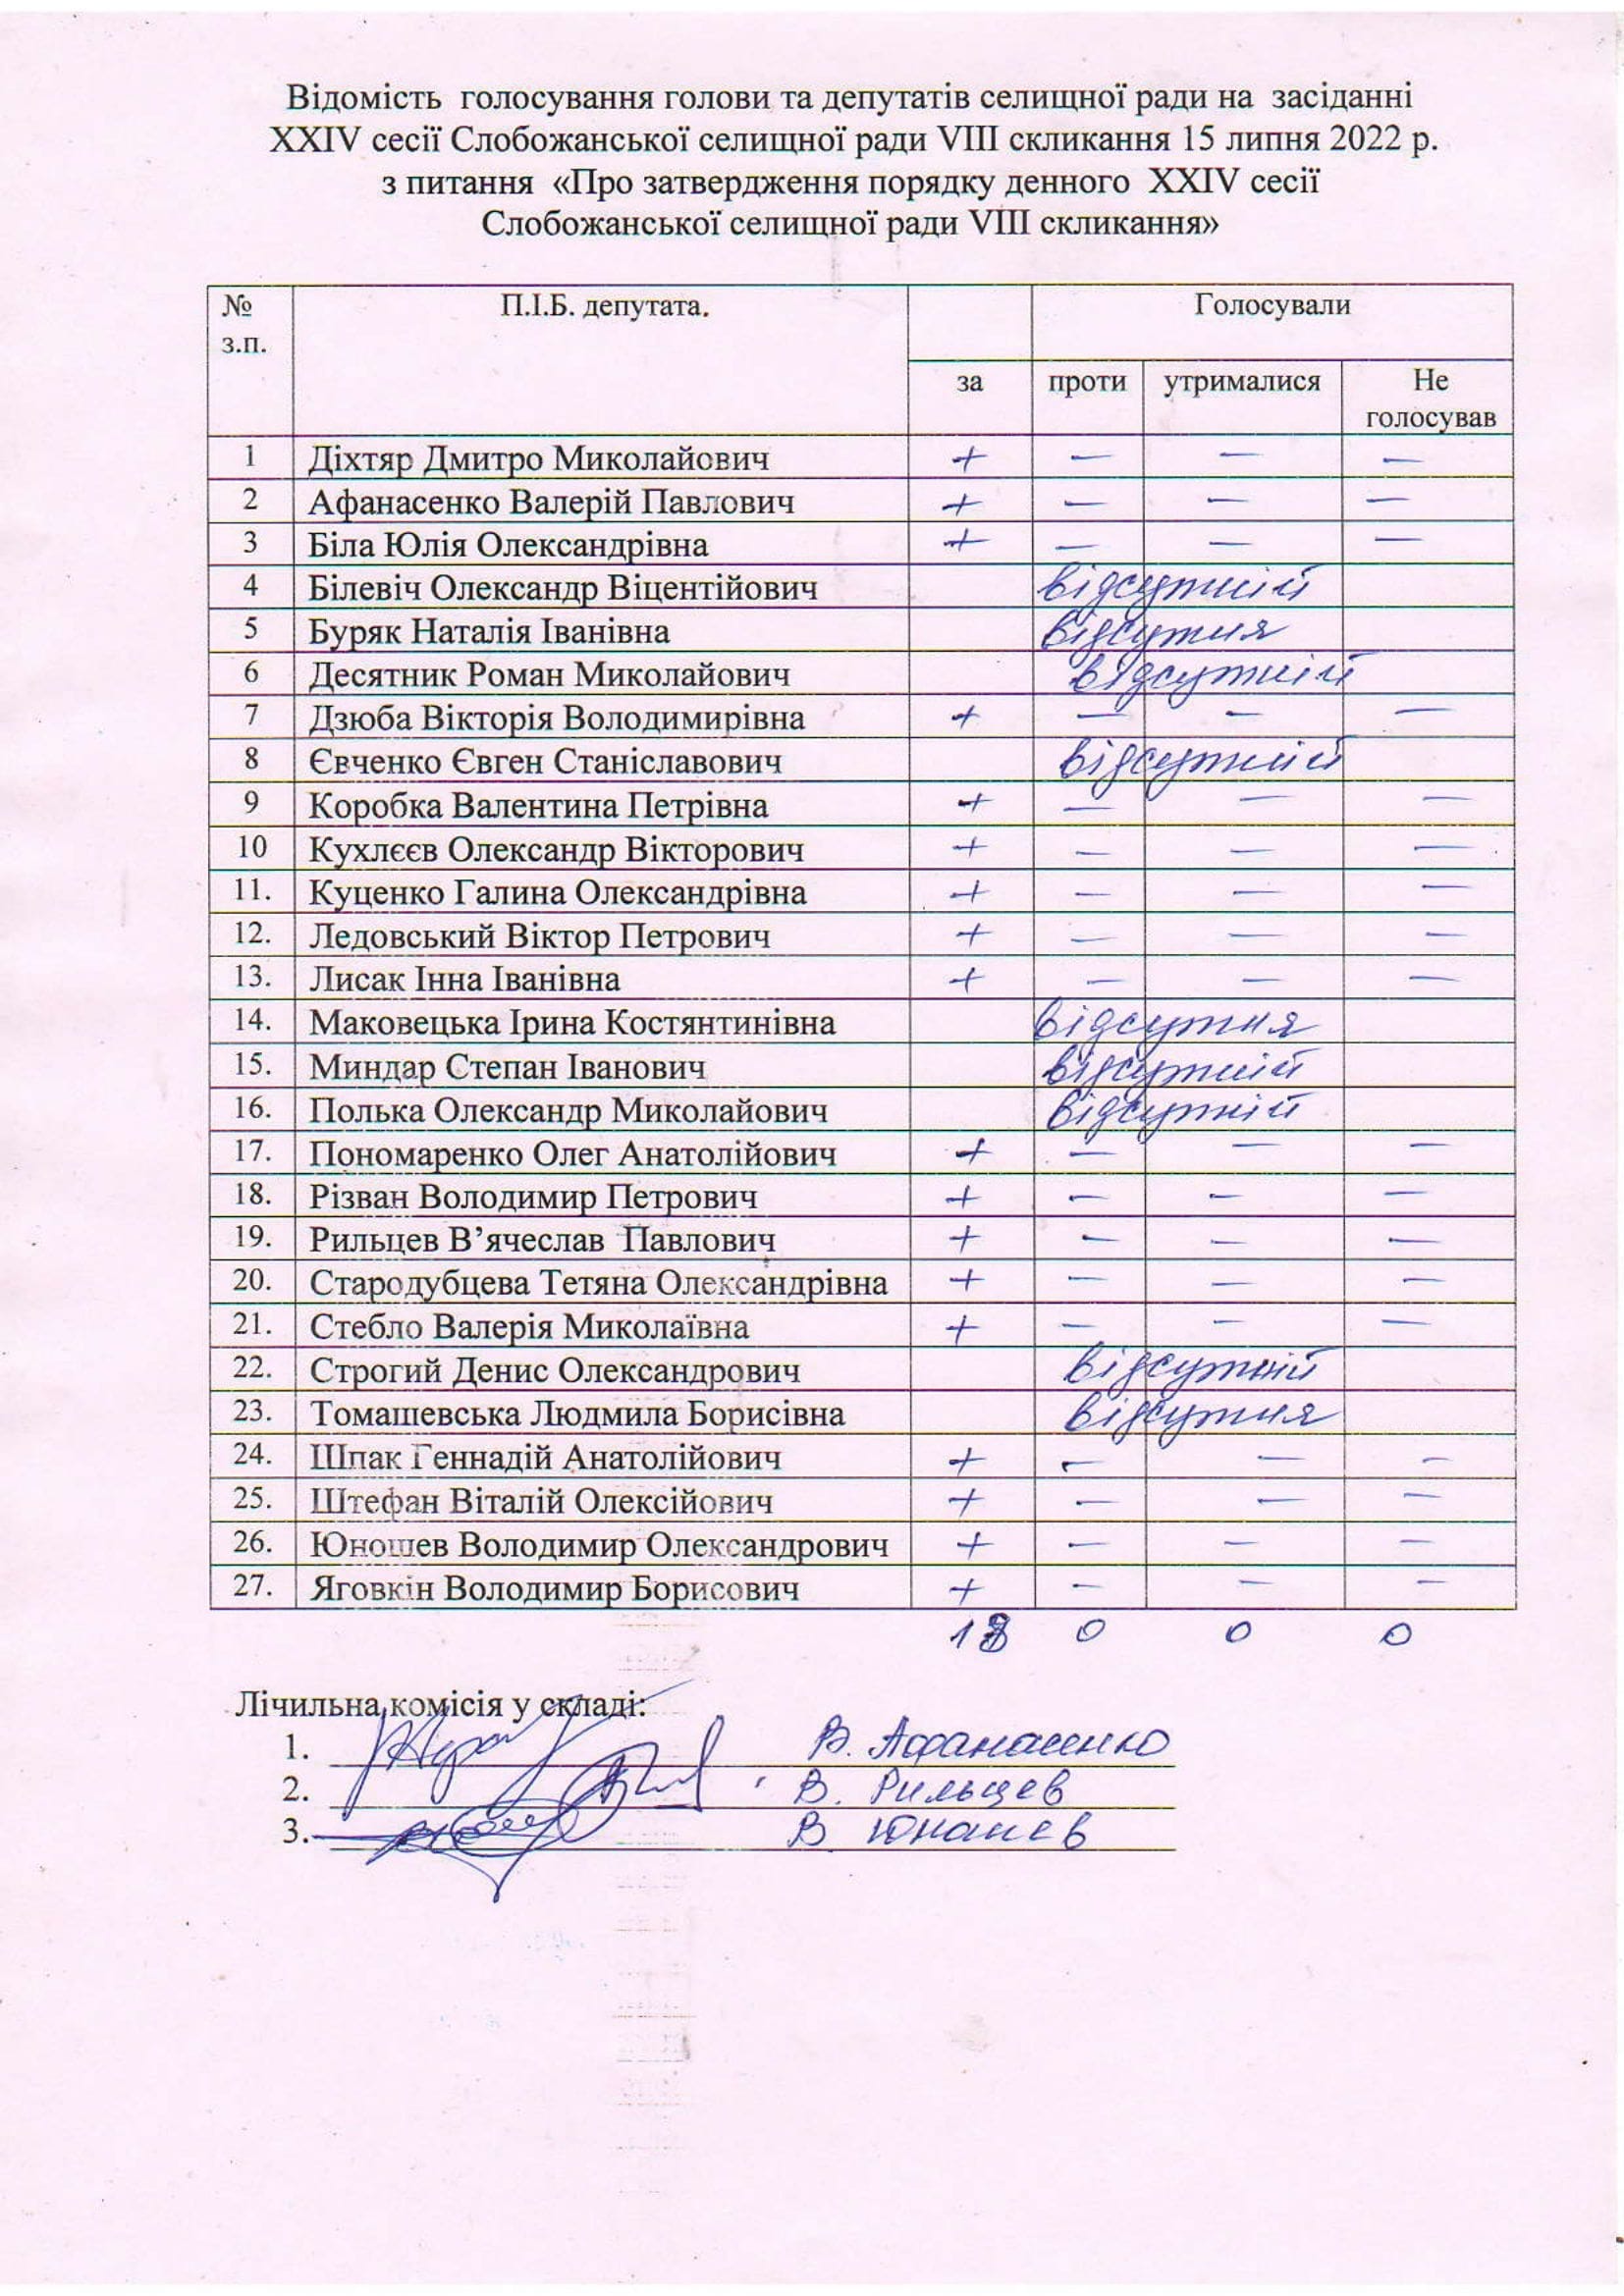 Відомість голосування голови та депутатів селищної ради на засіданні
XXIV сесії Слобожанської селищної ради VIII скликання 15 липня 2022 р.
з питання «Про затвердження порядку денного XXIV сесії
Слобожанської селищної ради VIII скликання»
№ з.п. П.І.Б. депутата. Голосували
за проти утрималися Не голосував
1 Діхтяр Дмитро Миколайович + — — —
2 Афанасенко Валерій Павлович + — — —
3 Біла Юлія Олександрівна + — — —
4 Білевіч Олександр Віцентійович відсутній
5 Буряк Наталія Іванівна відсутня
6 Десятник Роман Миколайович відсутній
7 Дзюба Вікторія Володимирівна + — — —
8 Євченко Євген Станіславович відсутній
9 Коробка Валентина Петрівна + — — —
10 Кухлєєв Олександр Вікторович + — — —
11. Куценко Галина Олександрівна + — — —
12. Ледовський Віктор Петрович + — — —
13. Лисак Інна Іванівна + — — —
14. Маковецька Ірина Костянтинівна відсутня
15. Миндар Степан Іванович відсутній
16. Полька Олександр Миколайович відсутній
17. Пономаренко Олег Анатолійович + — — —
18. Різван Володимир Петрович + — — —
19. Рильцев В’ячеслав Павлович + — — —
20. Стародубцева Тетяна Олександрівна + — — —
21. Стебло Валерія Миколаївна + — — —
22. Строгий Денис Олександрович відсутній
23. Томашевська Людмила Борисівна відсутня
24. Шпак Геннадій Анатолійович + — — —
25. Штефан Віталій Олексійович + — — —
26. Юношев Володимир Олександрович + — — —
27. Яговкін Володимир Борисович + — — —
18 0 0 0
Лічильна комісія у складі:
1. В. Афанасенко
2. В. Рильцев
3. В Юношев